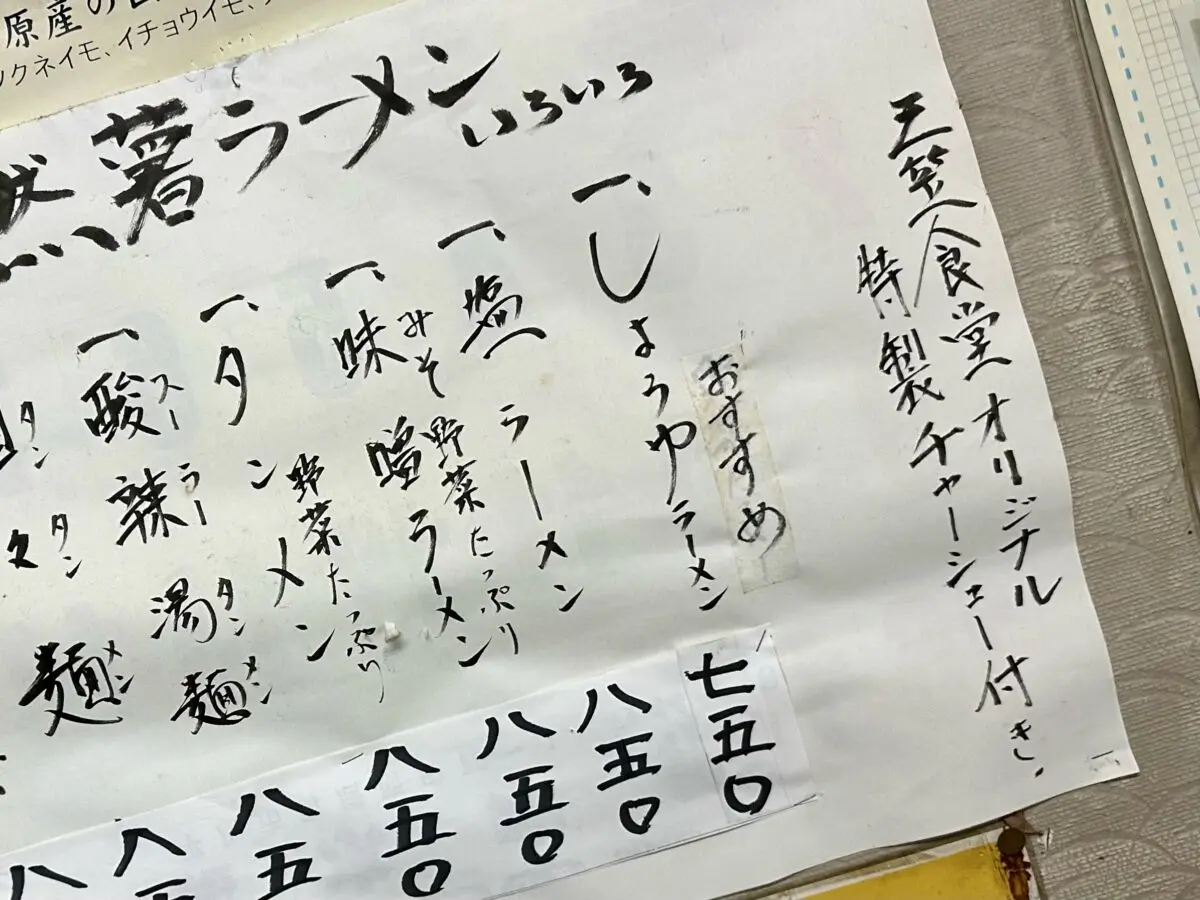 原産の
クネイモ、イチョウイモ、
然薯ラーメン いろいろ
三笠食堂オリジナル
特製チャーシュー付き.
おすすめ
一、しょうゆラーメン 七五〇
一、塩ラーメン 八五〇
みそ
一、味噌ラーメン 八五〇
野菜たっぷり
一、タンメン 八五〇
野菜たっぷり
スーラータンメン
一、酸辣湯麺 八五
タンタンメン
麺 八
八